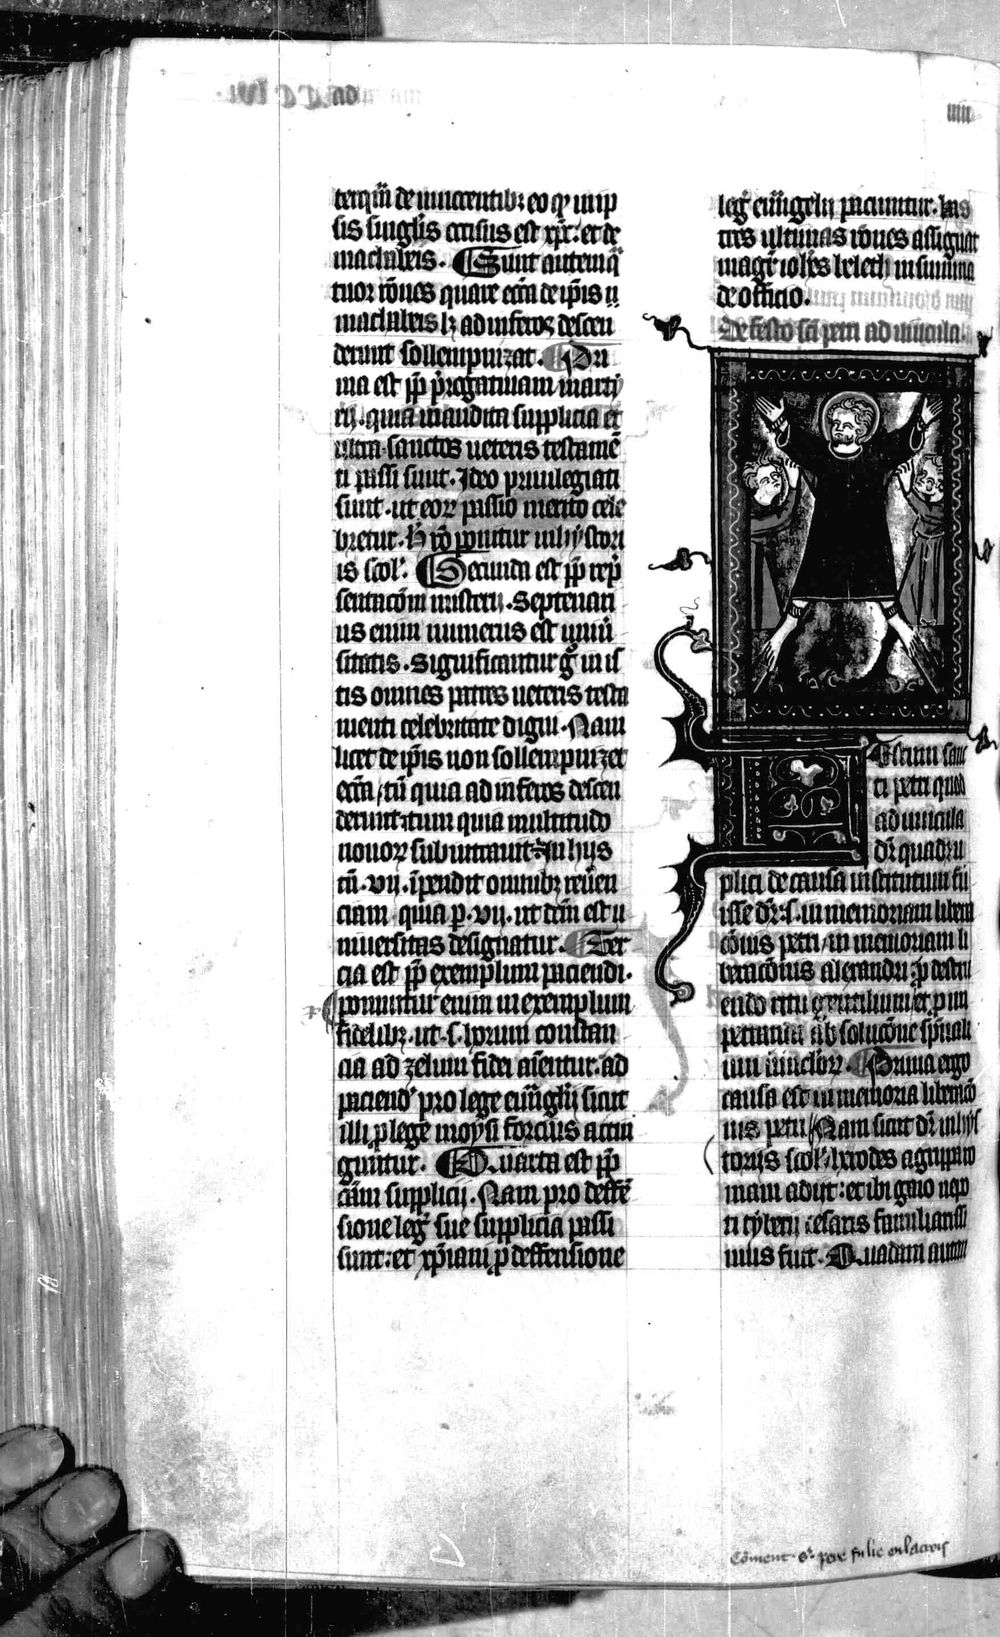 terq̃ʒ de innocentibꝫ eo qꝫ in ip
sis singl̃is occisus est xp̃c. et de
machabeis. ¶ Sunt autem q̃
tuor rõnes quare ecc̃a de ip̃is
machabeis lꝫ ad inferos descen
derunt sollempnizat. ¶ Pri
ma est pp̃ p̃rogatiuam marti
rij. quia inaudita supplicia et
ultra sanctos ueteris testamẽ
ti passi sunt. Ideo priuilegiati
sunt. ut eoꝝ passio merito cele
bretur. H̃ rõ ponitur in hystori
is scol'. ¶ Secunda est pp̃ rep̃
sentacõm misterij. Septenari
us enim numerus est uniũ
sitatis. Significantur g̃ in is
tis omnes patres ueteris testa
menti celebritate digni. Nam
licet de ip̃is non sollempnizet
ecc̃a / tũ quia ad inferos descen
derunt. tum quia multitudo
nouoꝝ subintrauit. In hijs
tñ .vij. ip̃endit omnibꝫ reũen
ciam. quia p .vij. ut dc̃m est u
niuersitas designatur. ¶ Ter
cia est pp̃ exemplum paciendi.
ponuntur enim in exemplum
fidelibꝫ. ut .s. hoꝝum constan
cia ad zelum fidei aĩentur. ad
paciend' pro lege euuãglij sicut
illi p lege moysi forcius accin
guntur. ¶ Quarta est pp̃
cãm supplicij. Nam pro deffẽ
sione leg̃ sue supplicia passi
sunt: et xp̃iani p deffensione
leg̃ euuãgelij paciuntur. has
tres ultimas rões assignat
magr̃ ioh̃es beleth in summa
de officio.
De festo sc̃i petri ad uincula.
Festum sanc
ti petri quod
ad uincula
dr̃ quadru
plici de causa institutum fu
isse dr̃ .s. in memoriam libera
cõnis petri / in memoriam li
beracõnis alexandri. p destru
endo ritu gentilium et p im
petranda absolucõne sp̃uali
um uinclorꝝ. ¶ Prima ergo
causa est in memoria liberacõ
nis petri / Nam sicut dr̃ in hys
torijs scol'. herodes agrippa ro
mam adijt: et ibi gaio nepo
ti tyberij cesaris familiarissi
mus fuit. Quadam autem
Cõment. st. pere fu lie en lacroix